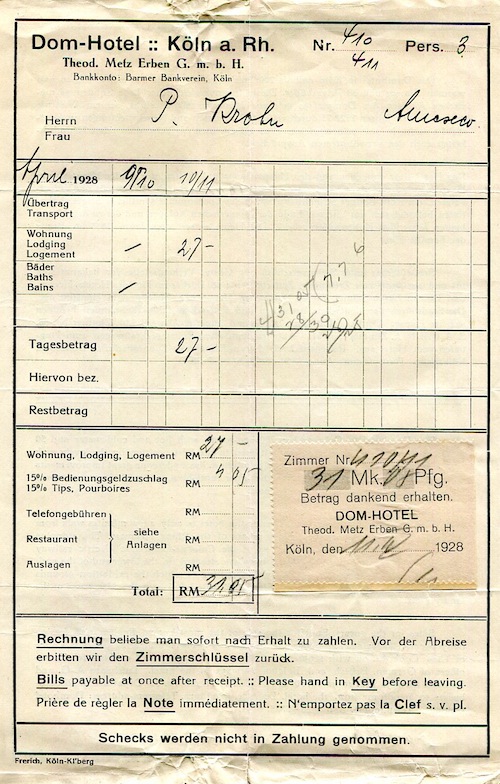 Dom-Hotel :: Köln a. Rh. Nr. 410 Pers. 3
411
Theod. Metz Erben G. m. b. H.
Bankkonto: Barmer Bankverein, Köln
Herrn
Frau
P. Krohn
April 1928 9/10 10/11
Übertrag
Transport
Wohnung
Lodging
Logement — 27 -
Bäder
Baths
Bains —
Tagesbetrag 27 -
Hiervon bez.
Restbetrag
Wohnung, Lodging, Logement RM 27 -
15% Bedienungsgeldzuschlag
15% Tips, Pourboires RM 4 05
Telefongebühren RM
Restaurant siehe Anlagen RM
Auslagen RM
Total: RM 31 05
Zimmer Nr. 410/11
31 Mk. Pfg.
Betrag dankend erhalten.
DOM-HOTEL
Theod. Metz Erben G. m. b. H.
Köln, den 1928
Rechnung beliebe man sofort nach Erhalt zu zahlen. Vor der Abreise
erbitten wir den Zimmerschlüssel zurück.
Bills payable at once after receipt. :: Please hand in Key before leaving.
Prière de règler la Note immédiatement. :: N'emportez pas la Clef s. v. pl.
Schecks werden nicht in Zahlung genommen.
Frerich, Köln-Kl'berg